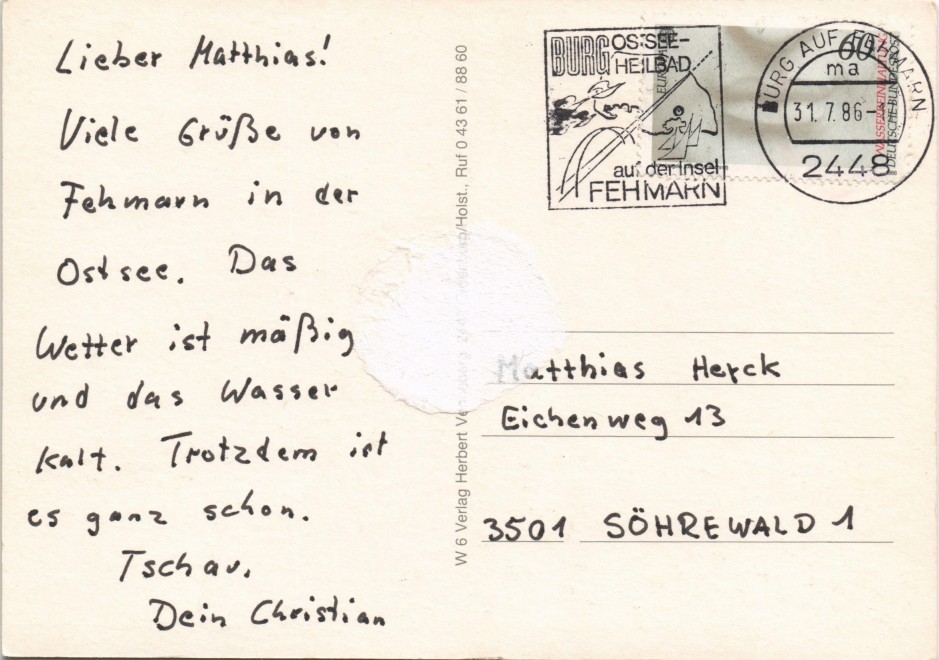 Lieber Matthias!
Viele Grüße von
Fehmarn in der
Ostsee. Das
Wetter ist mäßig
und das Wasser
kalt. Trotzdem ist
es ganz schon.
Tschau,
Dein Christian
W 6 Verlag Herbert /Holst., Ruf 0 43 61 / 88 60
BURG OSTSEE-
HEILBAD
auf der Insel
FEHMARN
EUROPA
60
WASSERREINHALTUNG
DEUTSCHE BUNDESPOST
BURG AUF FEHMARN
ma
31.7.86-
2448
Matthias Herck
Eichenweg 13
3501 SÖHREWALD 1